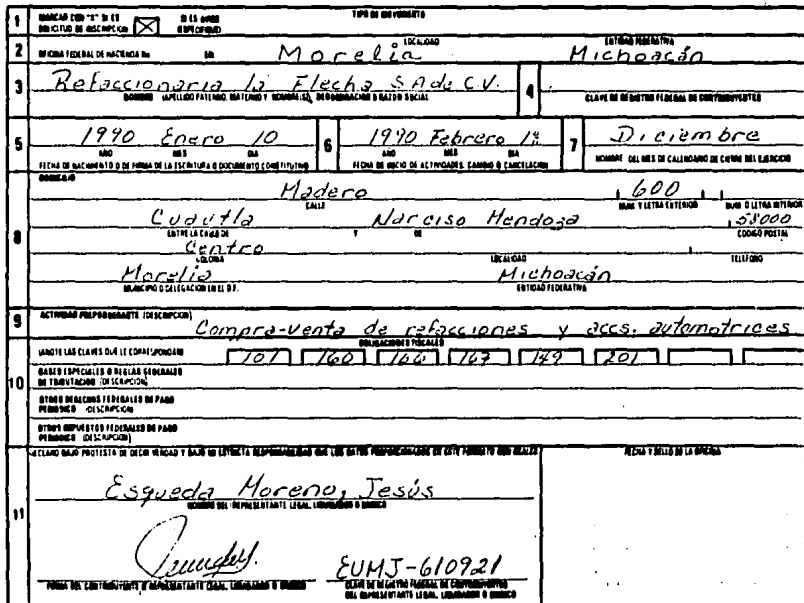 1 MARCAR CON "X" SI ES SOLICITUD DE INSCRIPCION X SI ES AVISO ESPECIFIQUELO TIPO DE MOVIMIENTO
2 OFICINA FEDERAL DE HACIENDA No EN Morelia LOCALIDAD Michoacán ENTIDAD FEDERATIVA
3 Refaccionaria la Flecha S.A de C.V. 4
NOMBRE (APELLIDO PATERNO, MATERNO Y NOMBRE(S)), DENOMINACION O RAZON SOCIAL CLAVE DE REGISTRO FEDERAL DE CONTRIBUYENTES
5 1990 Enero 10 6 1990 Febrero 1º 7 Diciembre
AÑO MES DIA AÑO MES DIA
FECHA DE NACIMIENTO O DE FIRMA DE LA ESCRITURA O DOCUMENTO CONSTITUTIVO FECHA DE INICIO DE ACTIVIDADES, CAMBIO O CANCELACION NOMBRE DEL MES DE CALENDARIO DE CIERRE DEL EJERCICIO
8 DOMICILIO
Madero 600
CALLE NUM Y LETRA EXTERIOR NUM O LETRA INTERIOR
Cuautla Narciso Mendoza 58000
ENTRE LA CALLE DE Y DE CODIGO POSTAL
Centro
COLONIA LOCALIDAD TELEFONO
Morelia Michoacán
MUNICIPIO O DELEGACION EN EL D.F. ENTIDAD FEDERATIVA
9 ACTIVIDAD PREPONDERANTE (DESCRIPCION)
Compra-venta de refacciones y accs. automotrices
OBLIGACIONES FISCALES
10 (ANOTE LAS CLAVES QUE LE CORRESPONDAN) 101 160 166 167 149 201
BASES ESPECIALES O REGLAS GENERALES DE TRIBUTACION (DESCRIPCION)
OTROS DERECHOS FEDERALES DE PAGO PERIODICO (DESCRIPCION)
OTROS IMPUESTOS FEDERALES DE PAGO PERIODICO (DESCRIPCION)
11 DECLARO BAJO PROTESTA DE DECIR VERDAD Y BAJO MI ESTRICTA RESPONSABILIDAD QUE LOS DATOS PROPORCIONADOS EN ESTE FORMATO SON REALES FECHA Y SELLO DE LA OFICINA
Esqueda Moreno, Jesús
NOMBRE DEL REPRESENTANTE LEGAL, LIQUIDADOR O SINDICO
EUMJ-610921
FIRMA DEL CONTRIBUYENTE O REPRESENTANTE LEGAL, LIQUIDADOR O SINDICO CLAVE DE REGISTRO FEDERAL DE CONTRIBUYENTES DEL REPRESENTANTE LEGAL, LIQUIDADOR O SINDICO